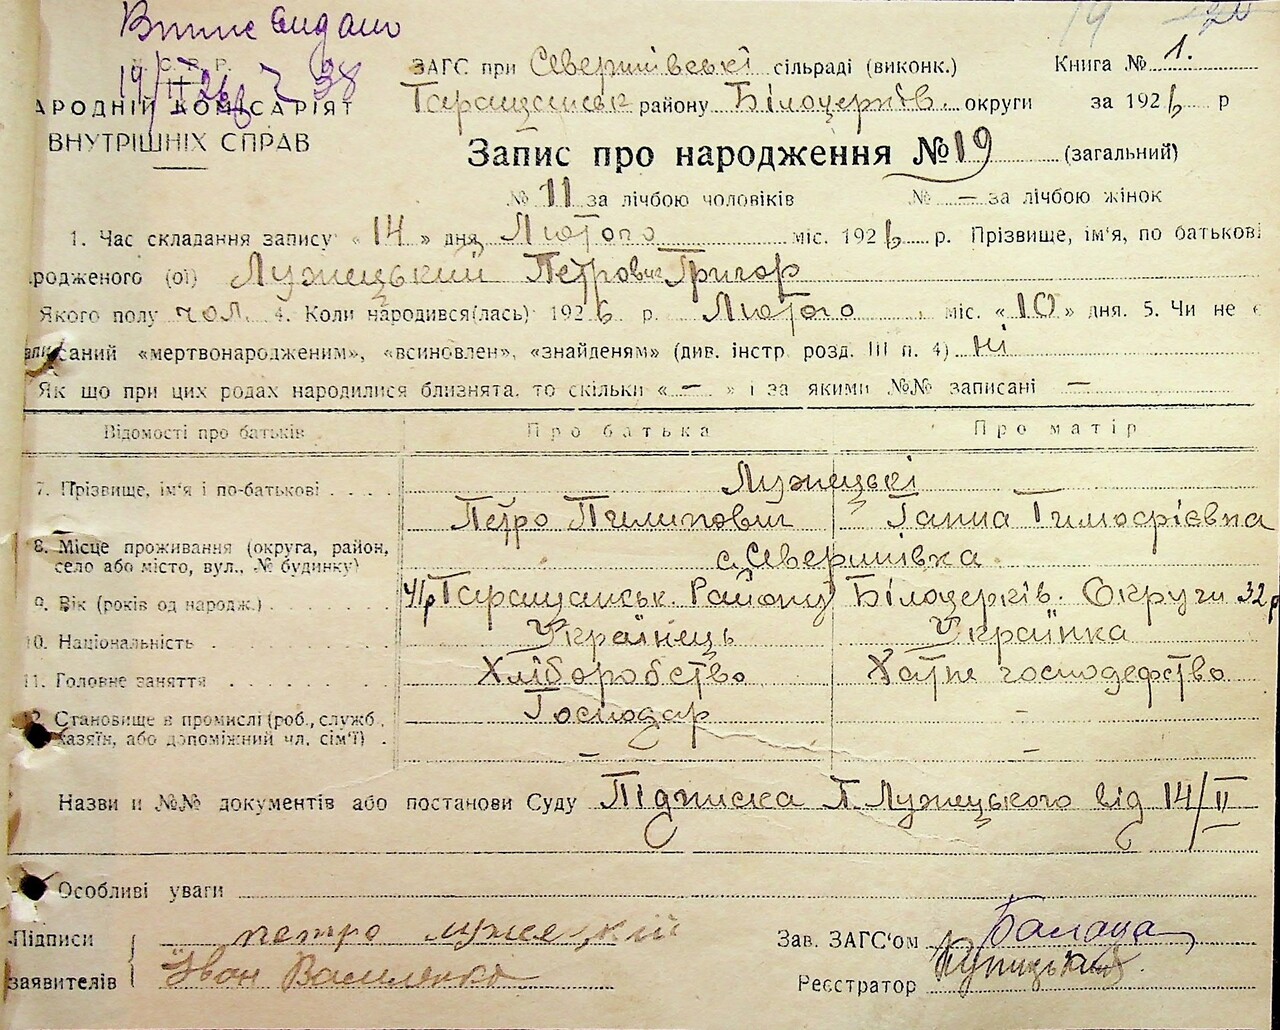 Випис видано
19/II 26р ч 38
У. С. Р. Р.
АРОДНІЙ КОМІСАРІЯТ
ВНУТРІШНІХ СПРАВ
ЗАГС при Северинівські сільраді (виконк.)
Таращанськ району Білоцерків. округи
Книга № 1.
за 1926 р
Запис про народження № 19 (загальний)
№ 11 за лічбою чоловіків № — за лічбою жінок
1. Час складання запису «14» дня Лютого міс. 1926 р. Прізвище, ім'я, по батькові
родженого (ої) Лужецький Петрович Григор
Якого полу чол. 4. Коли народився(лась) 1926 р. Лютого міс. «10» дня. 5. Чи не є
записаний «мертвонародженим», «всиновлен», «знайденям» (див. інстр. розд. III п. 4) ні
Як що при цих родах народилися близнята, то скільки « — » і за якими №№ записані —
Відомості про батьків Про батька Про матір
7. Прізвище, ім'я і по-батькові Лужецькі
Петро Пилипович Ганна Тимофієвна
8. Місце проживання (округа, район, село або місто, вул., № будинку) с. Северинівка
9. Вік (років од народж.) 41р Таращанськ. Району Білоцерків. Округи 32р
10. Національність Українець Українка
11. Головне заняття Хліборобство Хатнє господарство
12. Становище в промислі (роб., служб., Господар —
хазяїн, або допоміжний чл. сім'ї) — —
Назви и №№ документів або постанови Суду Підписка П. Лужецького від 14/II
Особливі уваги
Підписи петро лужецкій Зав. ЗАГС'ом
заявителів Іван Василенко Реєстратор